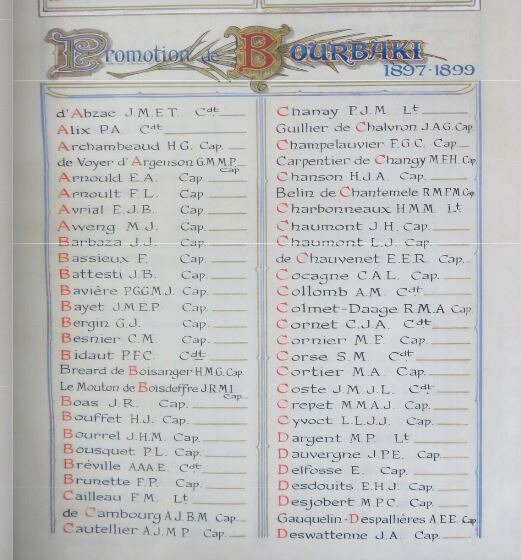 Promotion de BOURBAKI
1897-1899
d'Abzac J.M.E.T. Cdt
Alix P.A. Cdt
Archambeaud H.G. Cap.
de Voyer d'Argenson G.M.M.P. Cap.
Arnould E.A. Cap.
Arnoult F.L. Cap.
Avrial E.J.B. Cap.
Aweng M.J. Cap.
Barbaza J.J. Cap.
Bassieux F. Cap.
Battesti J.B. Cap.
Bavière P.G.G.M.J. Cap.
Bayet J.M.E.P. Cap.
Bergin G.J. Cap.
Besnier C.M. Cap.
Bidaut P.F.C. Cdt
Breard de Boisanger H.M.G. Cap.
Le Mouton de Boisdeffre J.R.M.I Cap.
Boas J.R. Cap.
Bouffet H.J. Cap.
Bourrel J.H.M. Cap.
Bousquet P.L. Cap.
Bréville A.A.A.E. Cdt
Brunette F.P. Cap.
Cailleau F.M. Lt
de Cambourg A.J.B.M Cap.
Cautellier A.J.M.P Cap.
Chanay P.J.M. Lt
Guillier de Chalvron J.A.G. Cap.
Champelauvier F.G.C. Cap.
Carpentier de Changy M.F.H. Cap
Chanson H.J.A. Cap.
Belin de Chantemele R.M.F.M. Cap
Charbonneaux H.M.M. Lt
Chaumont J.H. Cap.
Chaumont L.J. Cap.
de Chauvenet E.E.R Cap.
Cocagne C.A.L. Cap.
Collomb A.M. Cdt
Colmet-Daage R.M.A Cap.
Cornet C.J.A. Cdt
Cornier M.F. Cap.
Corse S.M. Cdt
Cortier M.A. Cap.
Coste J.M.J.L. Cdt
Crepet M.M.A.J. Cap.
Cyvoct L.L.J.J. Cap.
Dargent M.P. Lt
Dauvergne J.P.E. Cap.
Delfosse E. Cap.
Desdouits E.H.J. Cap.
Desjobert M.P.C. Cap.
Gauquelin-Despallières A.E.E. Cap
Deswattenne J.A. Cap.